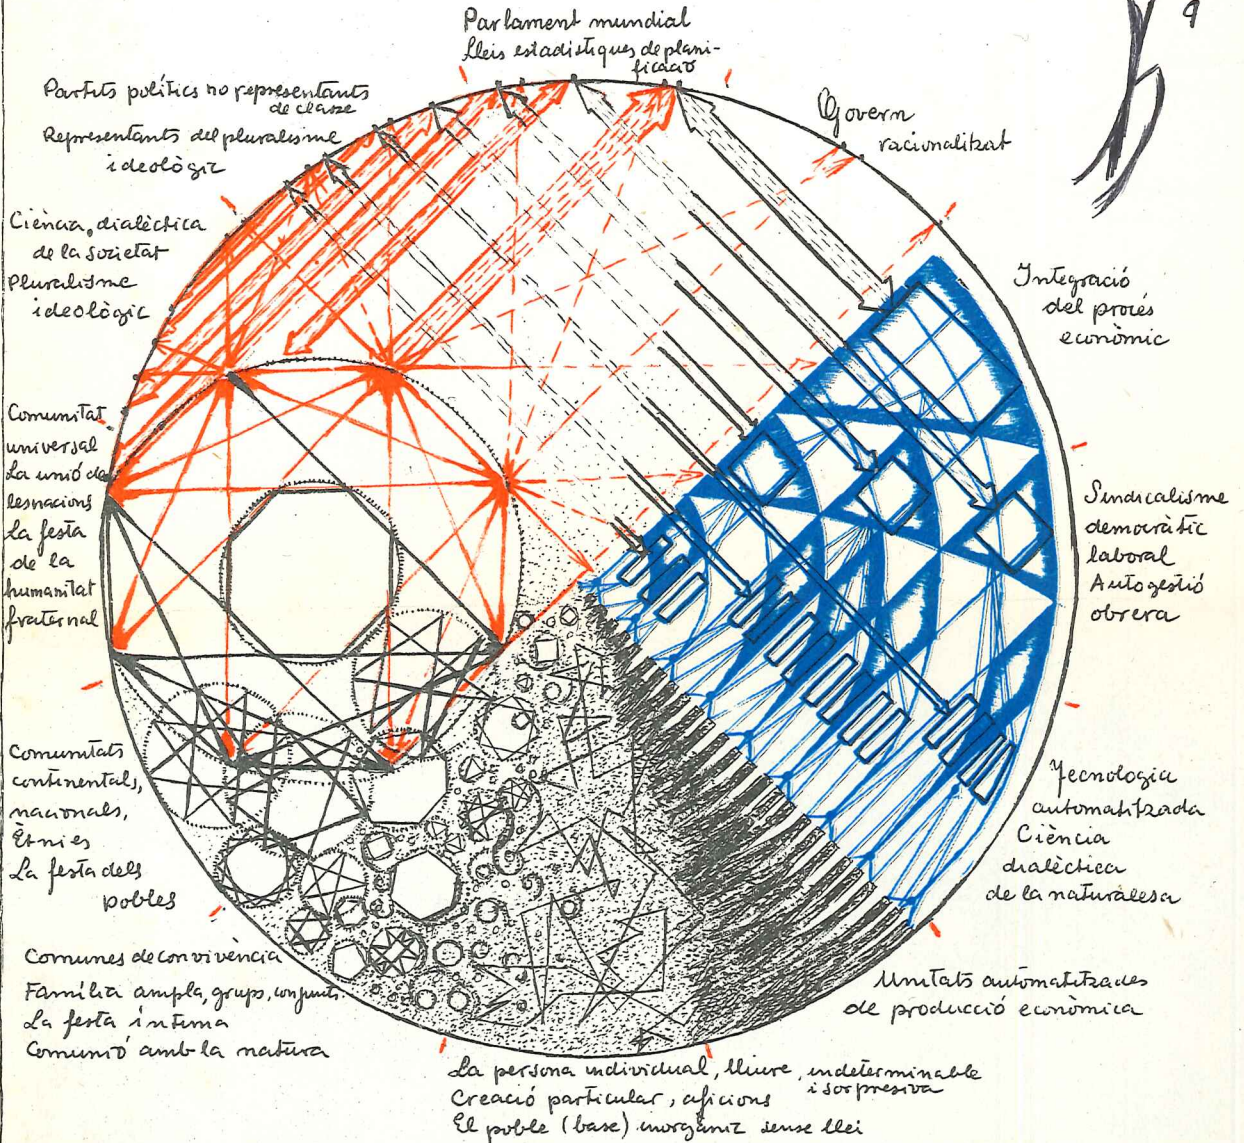 9
Parlament mundial
Lleis estadístiques de plani-
ficació
Partits polítics no representants
de classe
Representants del pluralisme
ideològic
Govern
racionalitzat
Ciència, dialèctica
de la societat
Pluralisme
ideològic
Integració
del procés
econòmic
Comunitat
universal
La unió de
les nacions
La festa
de la
humanitat
fraternal
Sindicalisme
democràtic
laboral
Autogestió
obrera
Comunitats
continentals,
nacionals,
Ètnies
La festa dels
pobles
Tecnologia
automatitzada
Ciència
dialèctica
de la naturalesa
Comunes de convivència
Família ampla, grups, conjunts.
La festa íntima
Comunió amb la natura
Unitats automatitzades
de producció econòmica
La persona individual, lliure, indeterminable
i sorpresiva
Creació particular, aficions
El poble (base) inorgànic sense llei